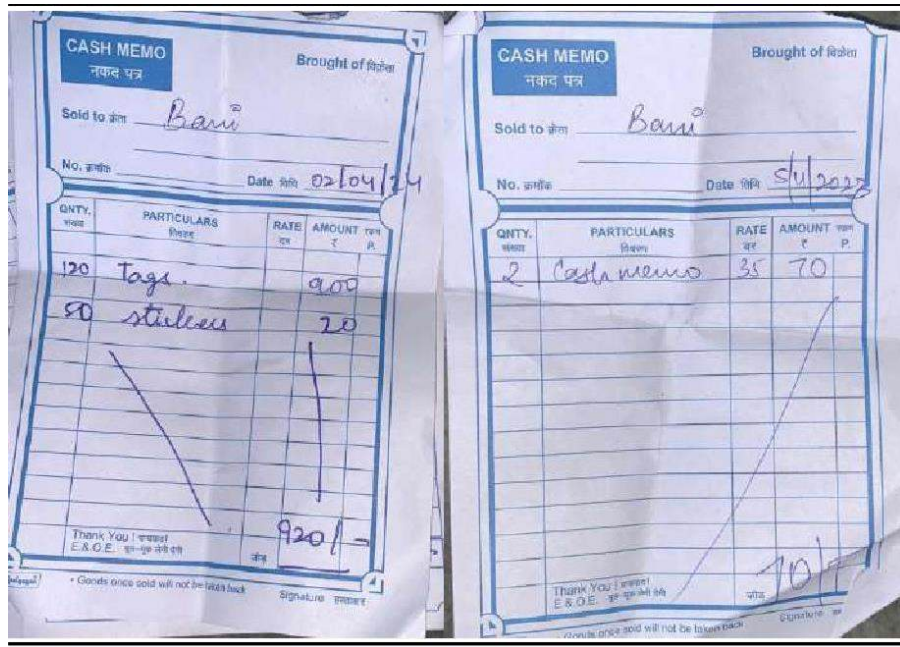 CASH MEMO
नकद पत्र
Brought of विक्रेता
Sold to क्रेता Bani
No. क्रमाँक
Date तिथि 02/04/24
QNTY. संख्या PARTICULARS विवरण RATE दर AMOUNT रकम
₹ P.
120 Tags. 900
50 stickers 20
Thank You ! धन्यवाद!
E.&.O.E. भूल-चूक लेनी देनी
जोड़ 920/-
• Goods once sold will not be taken back
Signature हस्ताक्षर
CASH MEMO
नकद पत्र
Brought of विक्रेता
Sold to क्रेता Bani
No. क्रमाँक
Date तिथि 5/4/2023
QNTY. संख्या PARTICULARS विवरण RATE दर AMOUNT रकम
₹ P.
2 Cash memo 35 70
Thank You ! धन्यवाद!
E.&.O.E. भूल-चूक लेनी देनी
जोड़ 70/-
Goods once sold will not be taken back
Signature